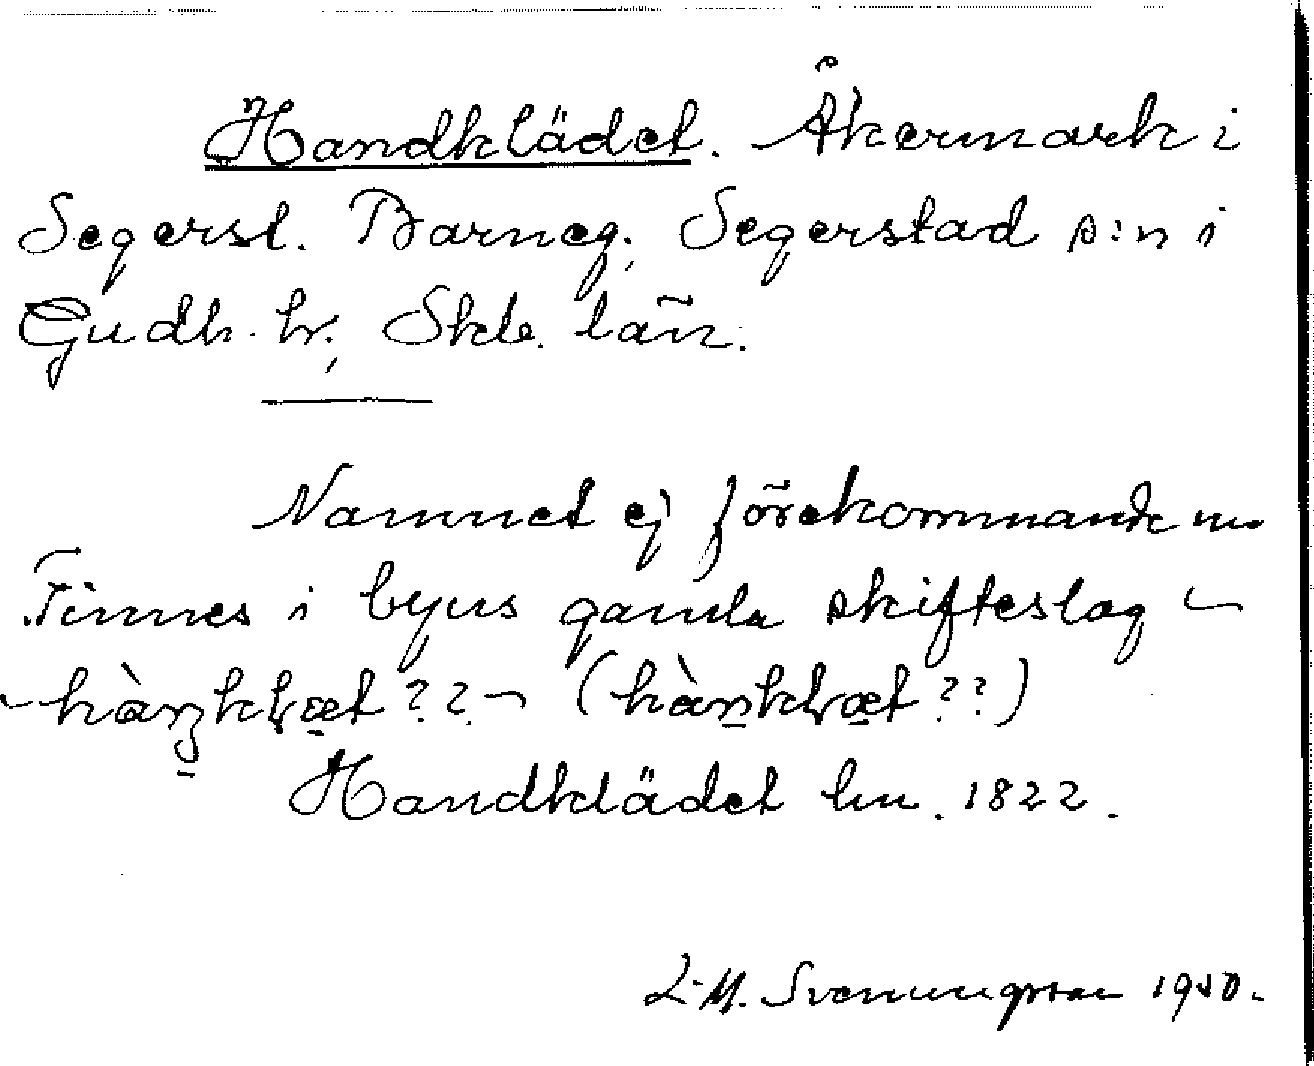 Handklädet. Åkermark i
Segerst. Barneg., Segerstad s:n i
Gudh. hr., Skbs. län.
Namnet ej förekommande nu
Finnes i byns gamla skifteslag –
(??)
Handklädet hu. 1822.
L. M. Svenungsson 1930.